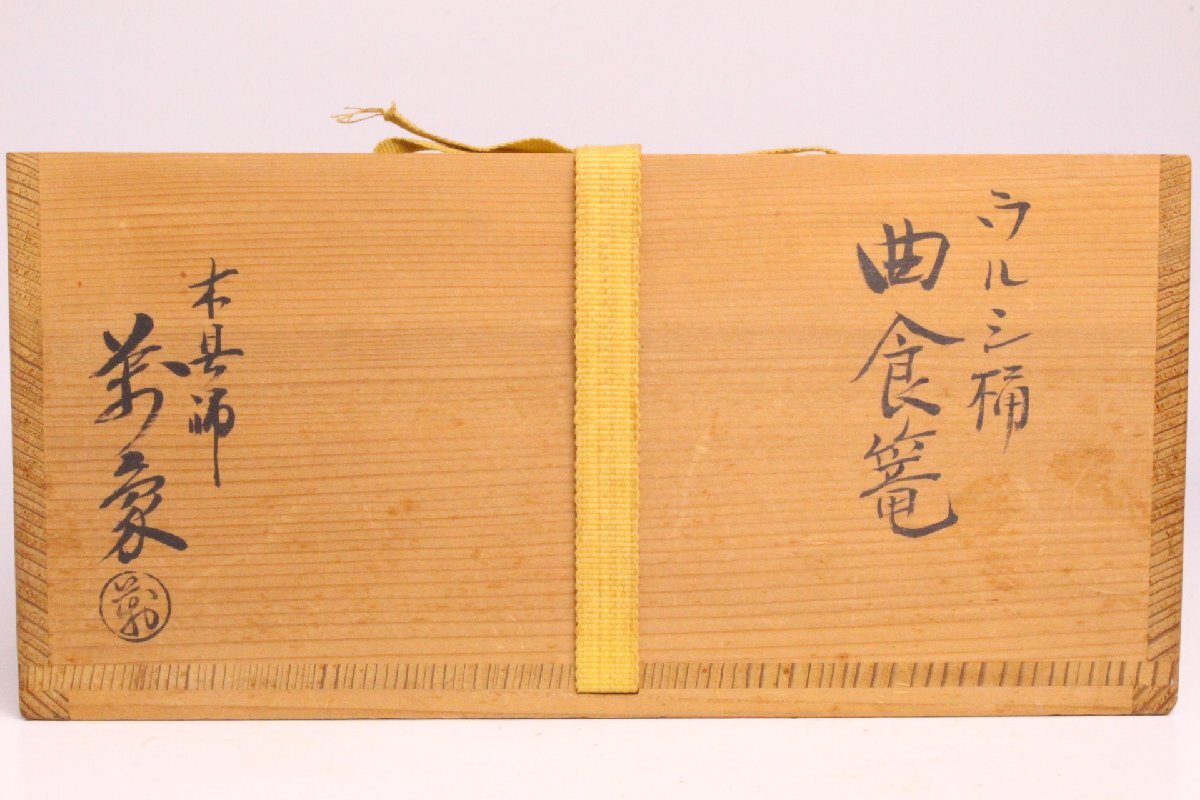 ウルシ桶
曲食篭
木具師
萬象